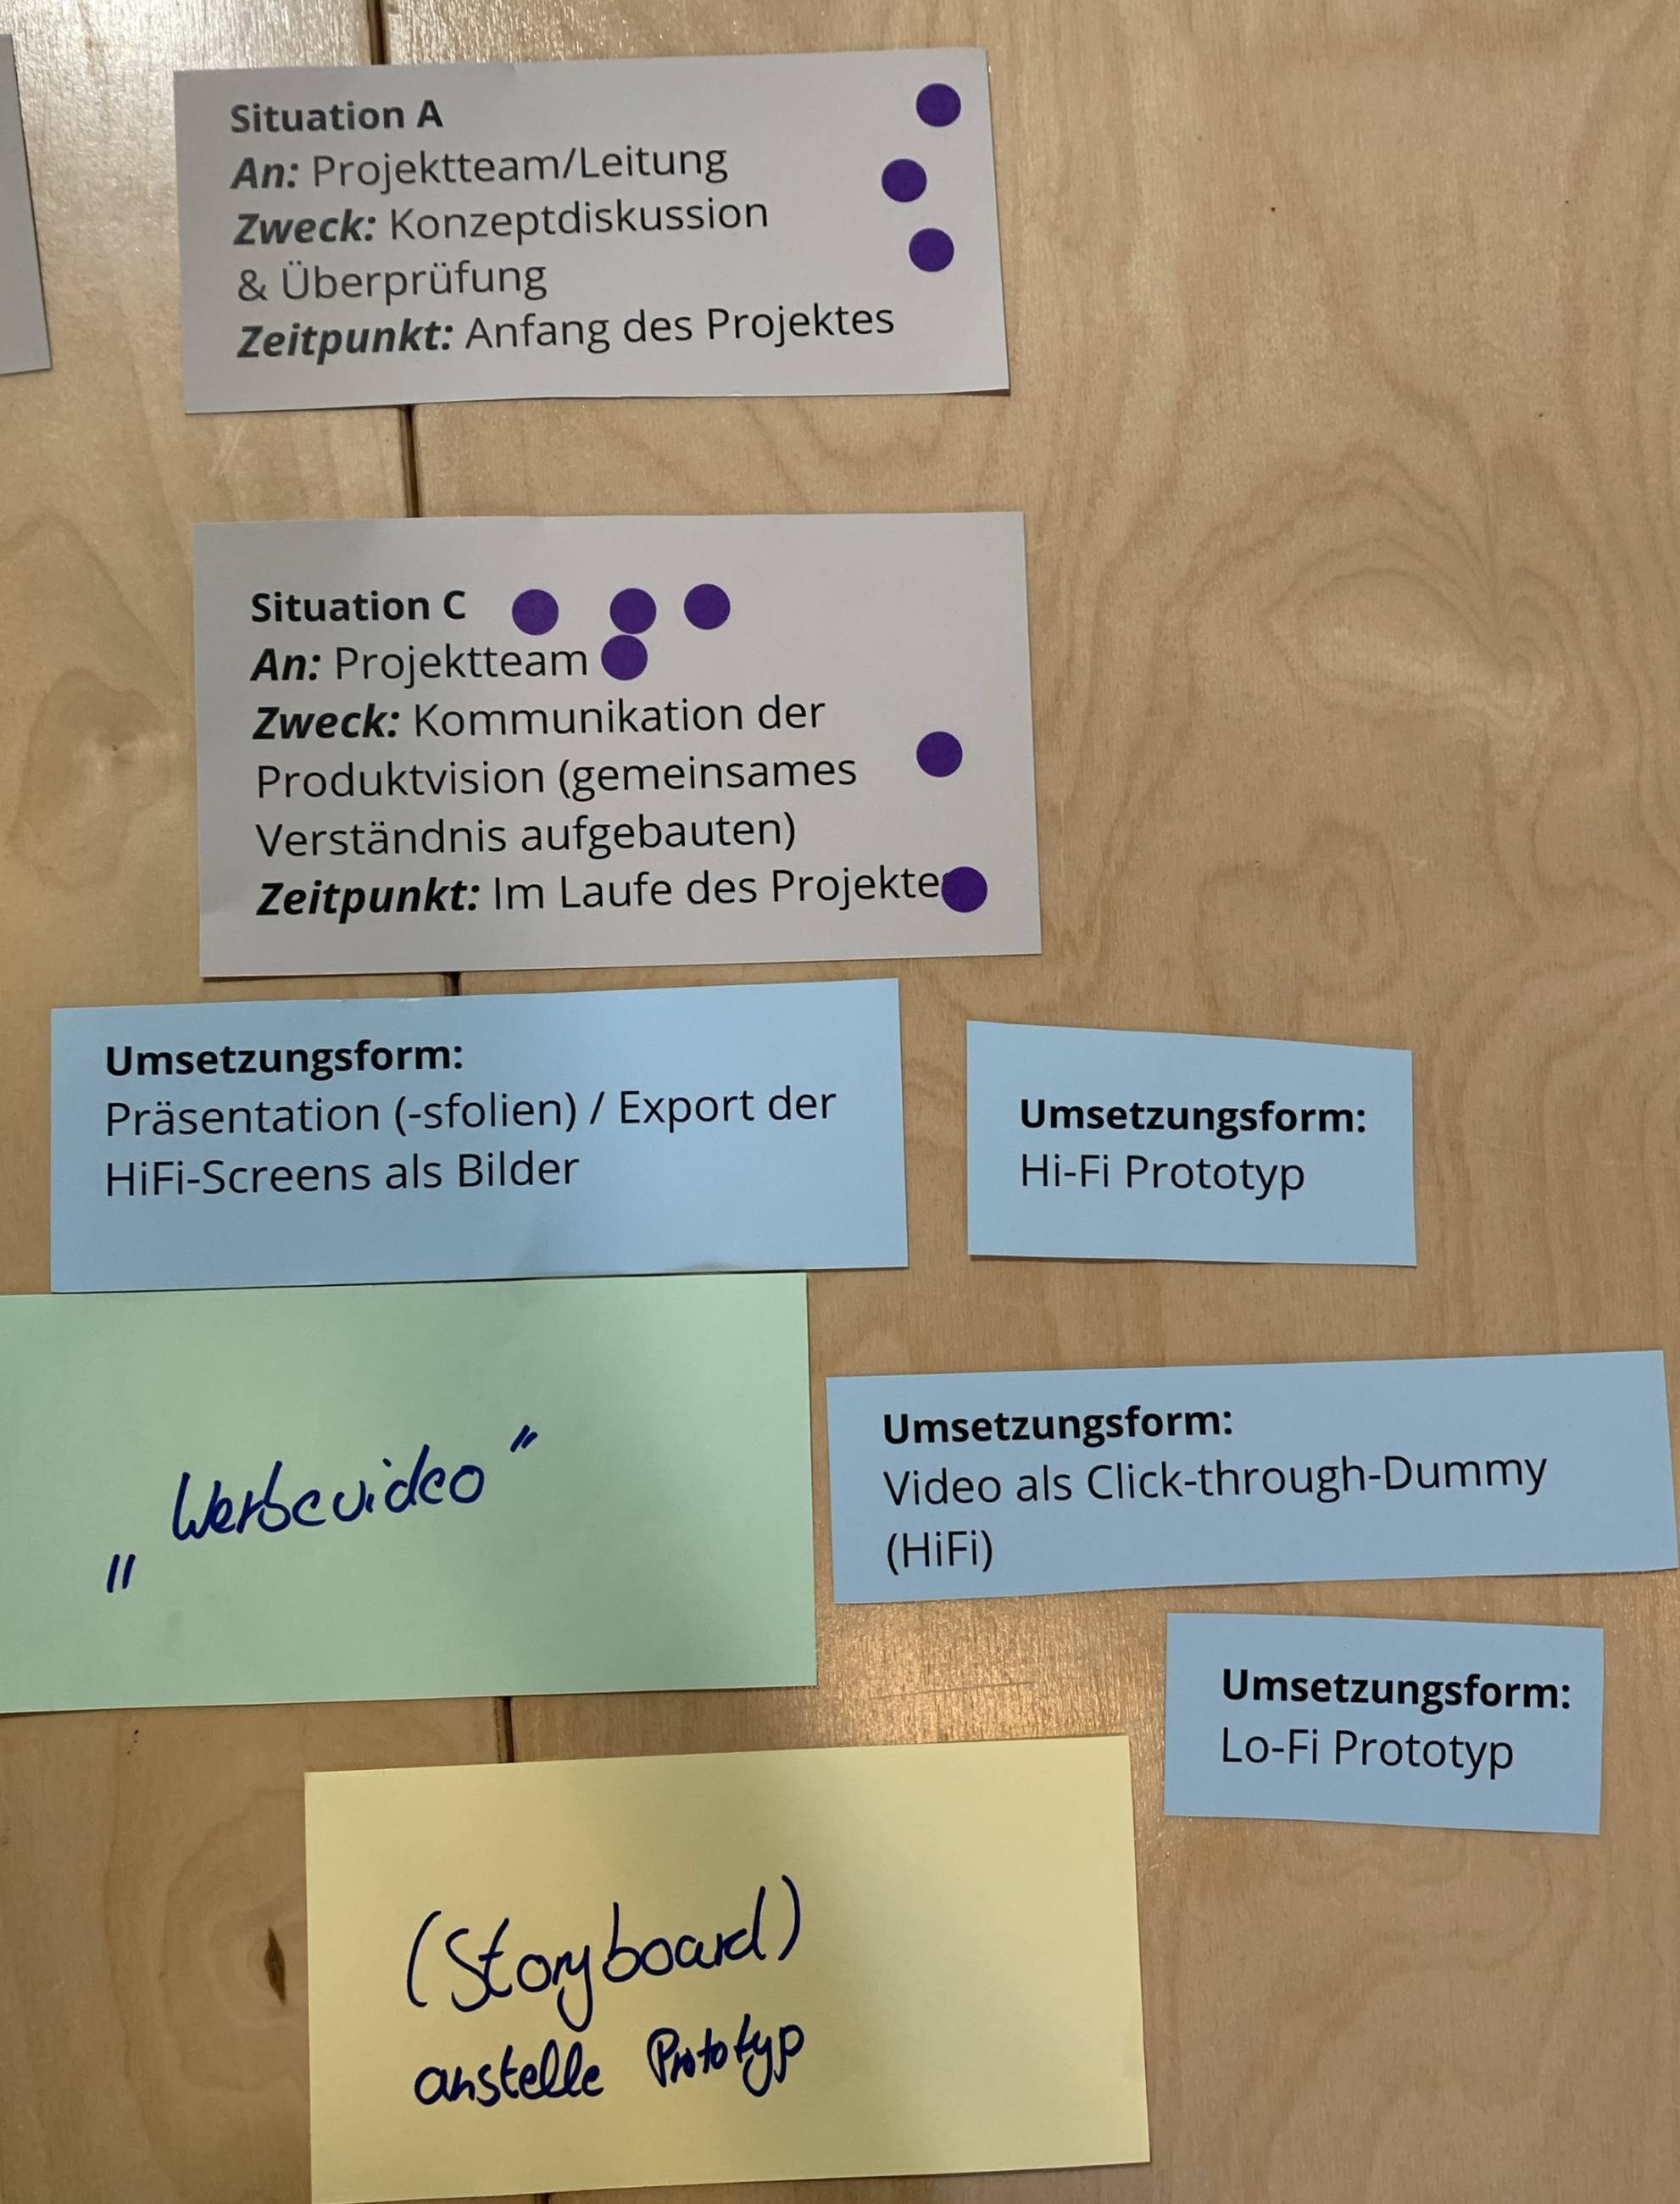 Situation A
An: Projektteam/Leitung
Zweck: Konzeptdiskussion
& Überprüfung
Zeitpunkt: Anfang des Projektes
Situation C
An: Projektteam
Zweck: Kommunikation der
Produktvision (gemeinsames
Verständnis aufgebauten)
Zeitpunkt: Im Laufe des Projekte
Umsetzungsform:
Präsentation (-sfolien) / Export der
HiFi-Screens als Bilder
Umsetzungsform:
Hi-Fi Prototyp
„Werbevideo"
Umsetzungsform:
Video als Click-through-Dummy
(HiFi)
Umsetzungsform:
Lo-Fi Prototyp
(Storyboard)
anstelle Prototyp